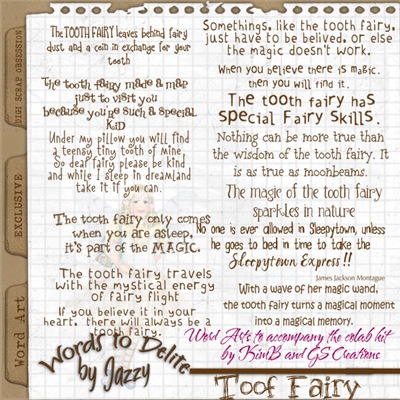 The TOOTH FAIRY leaves behind fairy
dust and a coin in exchange for your
tooth
The tooth fairy made a map
just to visit you
because you're such a special
KiD
Under my pillow you will find
a teensy tiny tooth of mine.
So deaf fairy please be kind
and while I sleep in dreamland
take it if you can.
The tooth fairy only comes
when you are asleep,
it's part of the MAGIC.
The tooth fairy travels
with the mystical energy
of fairy flight
If you believe it in your
heart, there will always be a
tooth fairy.
Somethings, like the tooth fairy,
just have to be belived, or else
the magic doesn't work.
When you believe there is magic,
then you will find it.
The tooth fairy has
special Fairy Skills.
Nothing can be more true than
the wisdom of the tooth fairy. It
is as true as moonbeams.
The magic of the tooth fairy
sparkles in nature
No one is ever allowed in Sleepytown, unless
he goes to bed in time to take the
Sleepytown Express !!
James Jackson Montague
With a wave of her magic wand,
the tooth fairy turns a magical moment
into a magical memory.
Word Arts to accompany the colab kit
by KimB and GS Creations
Words to Delite
by Jazzy
Toof Fairy
DIGI SCRAP OBSESSION
EXCLUSIVE
Word Art